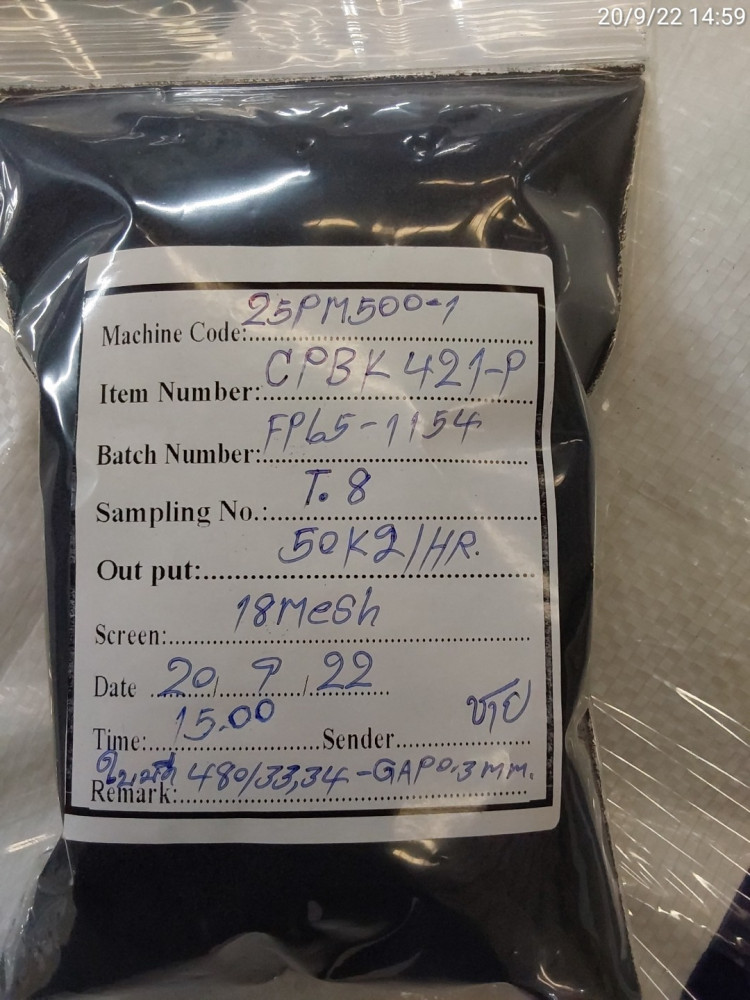 20/9/22 14:59
Machine Code: 25PM500-1
Item Number: CPBK 421-P
Batch Number: FP65-1154
Sampling No.: T. 8
Out put: 50Kg/HR.
Screen: 18Mesh
Date 20/ 9 / 22
Time: 15.00 Sender ชาย
Remark: ใบมีด 480/33,34-GAP0.3mm.